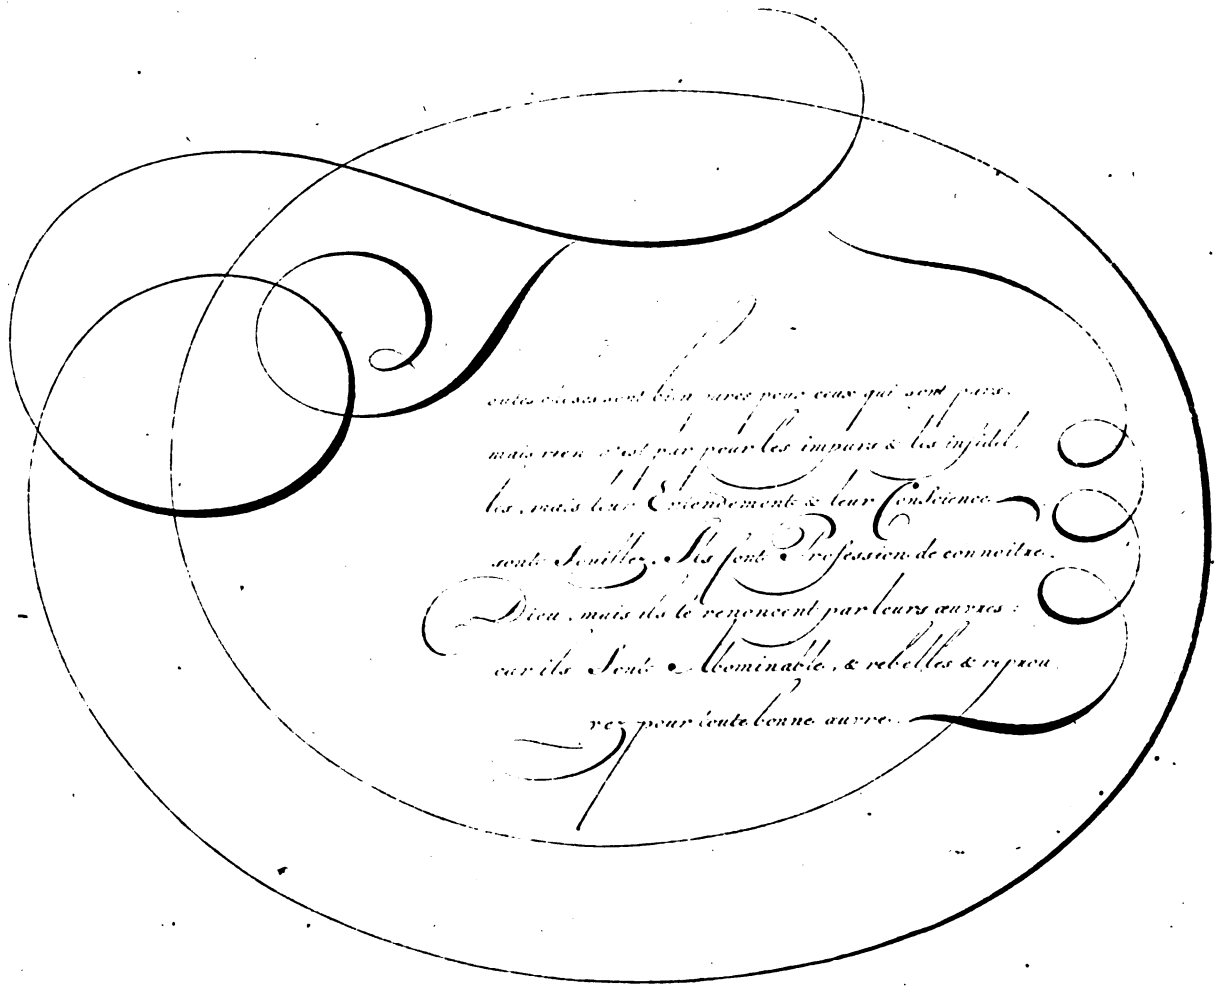 Toutes choses sont bien pures pour ceux qui sont purs.
mais rien n'est pur pour les impurs & les infidel,
les, mais leur Entendement & leur Conscience
sont Souillez. Ils sont Profession de connoitre
Dieu, mais ils le renoncent par leurs œuvres :
car ils Sont Abominable, & rebelles & reprou
vez pour toute bonne œuvre.